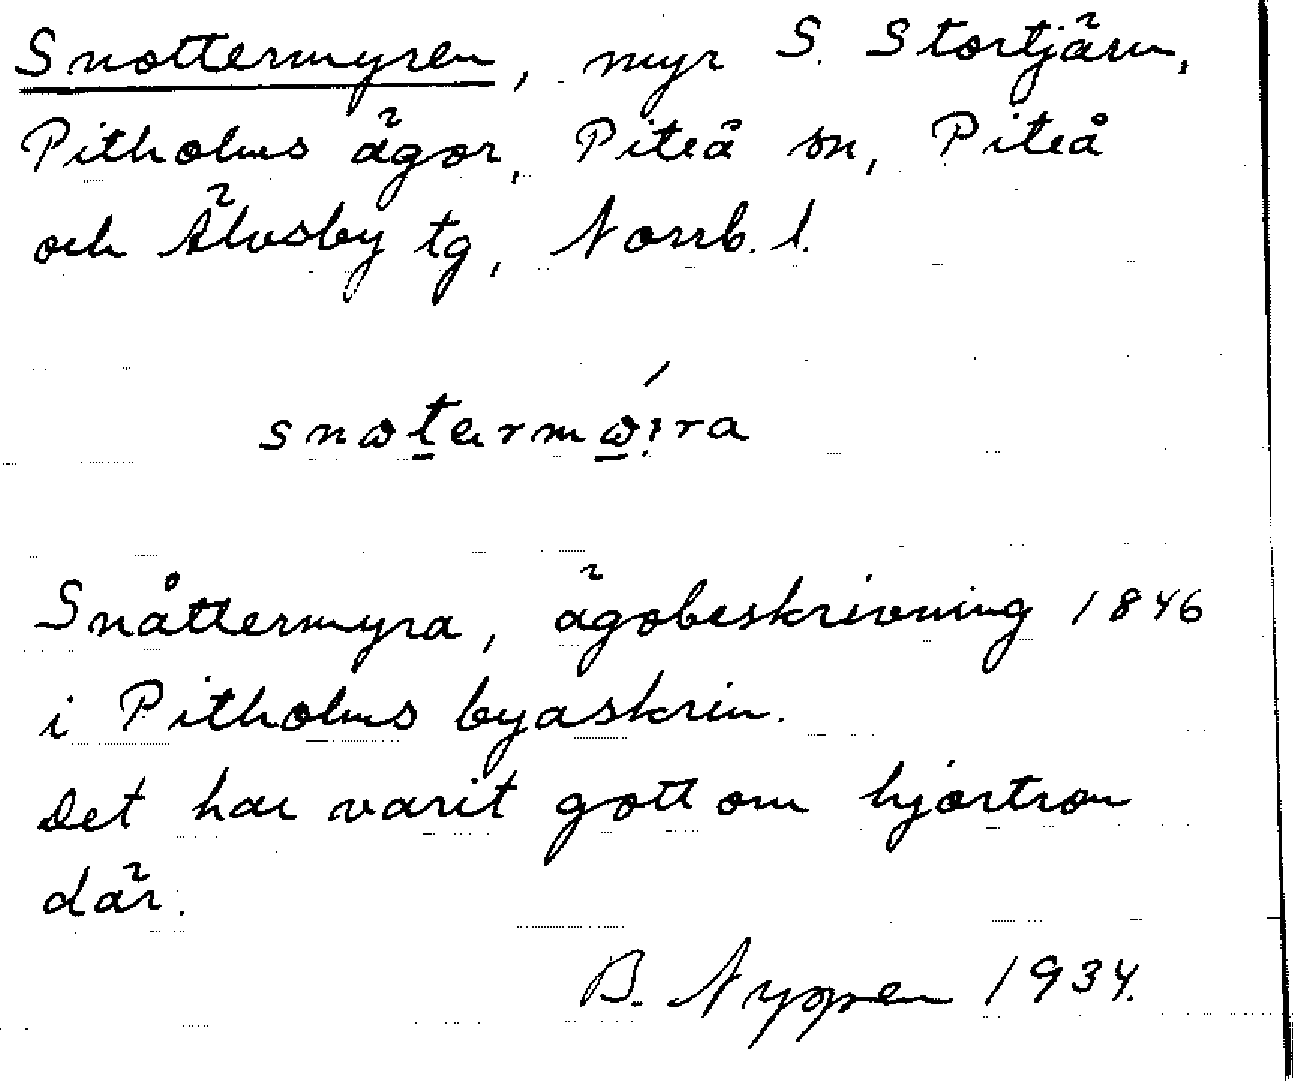 Snottermyren, myr S. Stortjärn,
Pitholms ägor, Piteå sn, Piteå
och Älvsby tg, Norrb. l.
Snåttermyra, ägobeskrivning 1846
i Pitholms byaskrin.
Det har varit gott om hjortron
där.
B. Nygren 1934.